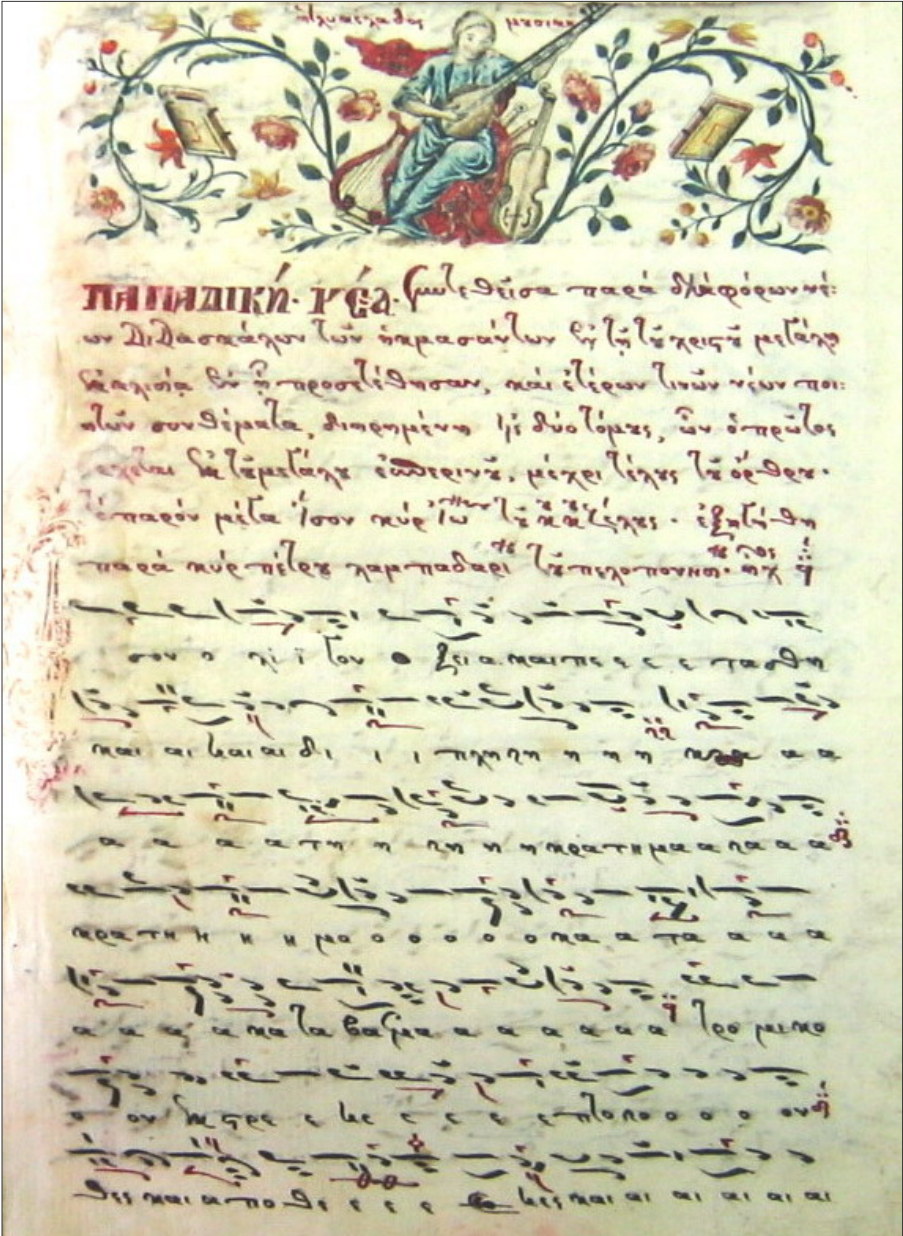 ΠΑΠΑΔΙΚΗ· ΝΈΑ· συντεθεῖσα παρά διαφόρων νέ:
ων διδασκάλων τῶν ἠκμασάντων ἐν τῇ τοῦ χριστοῦ μεγάλῃ
ἐκκλησίᾳ ἐν ᾗ προσετέθησαν, καί ἑτέρων τινῶν νέων ποι:
ητῶν συνθέματα, διῃρημένη εἰς δύο τόμους, ὧν ὁ πρῶτος
ἄρχεται ἐκ τοῦ μεγάλου ἑσπερινοῦ, μέχρι τέλους τοῦ ὄρθρου·
τό παρόν μέγα Ἴσον κύρ Ἰω τοῦ κουκουζέλους· ἐξηγήθη
παρά κύρ πέτρου λαμπαδαρίου τοῦ πελοποννησ. ἦχος
σον ο λι ι γον ο ξει α και πε ε ε ε τασθη
και αι και αι δι ι ι πλη η η η η κρα α α
α α α α τη η η η η η κρατημα α α α α
κρα τη η η η μα ο ο ο ο ο ο κα α τα α α α
α α α α κα τα βασμα α α α α α α τρο μι κο
ο ον εκ στρε ε κε ε ε ε ε πτο πο ο ο ο ον
θες και α πο θε ε ε ε κες και αι αι αι αι αι